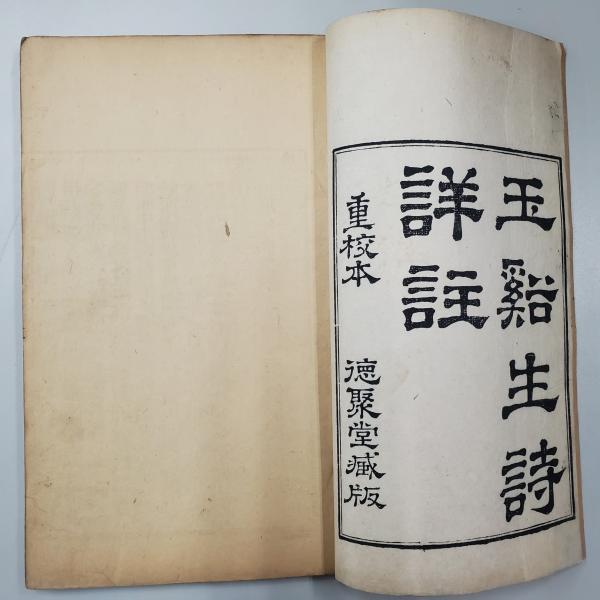 玉谿生詩
詳註
重校本　德聚堂藏版